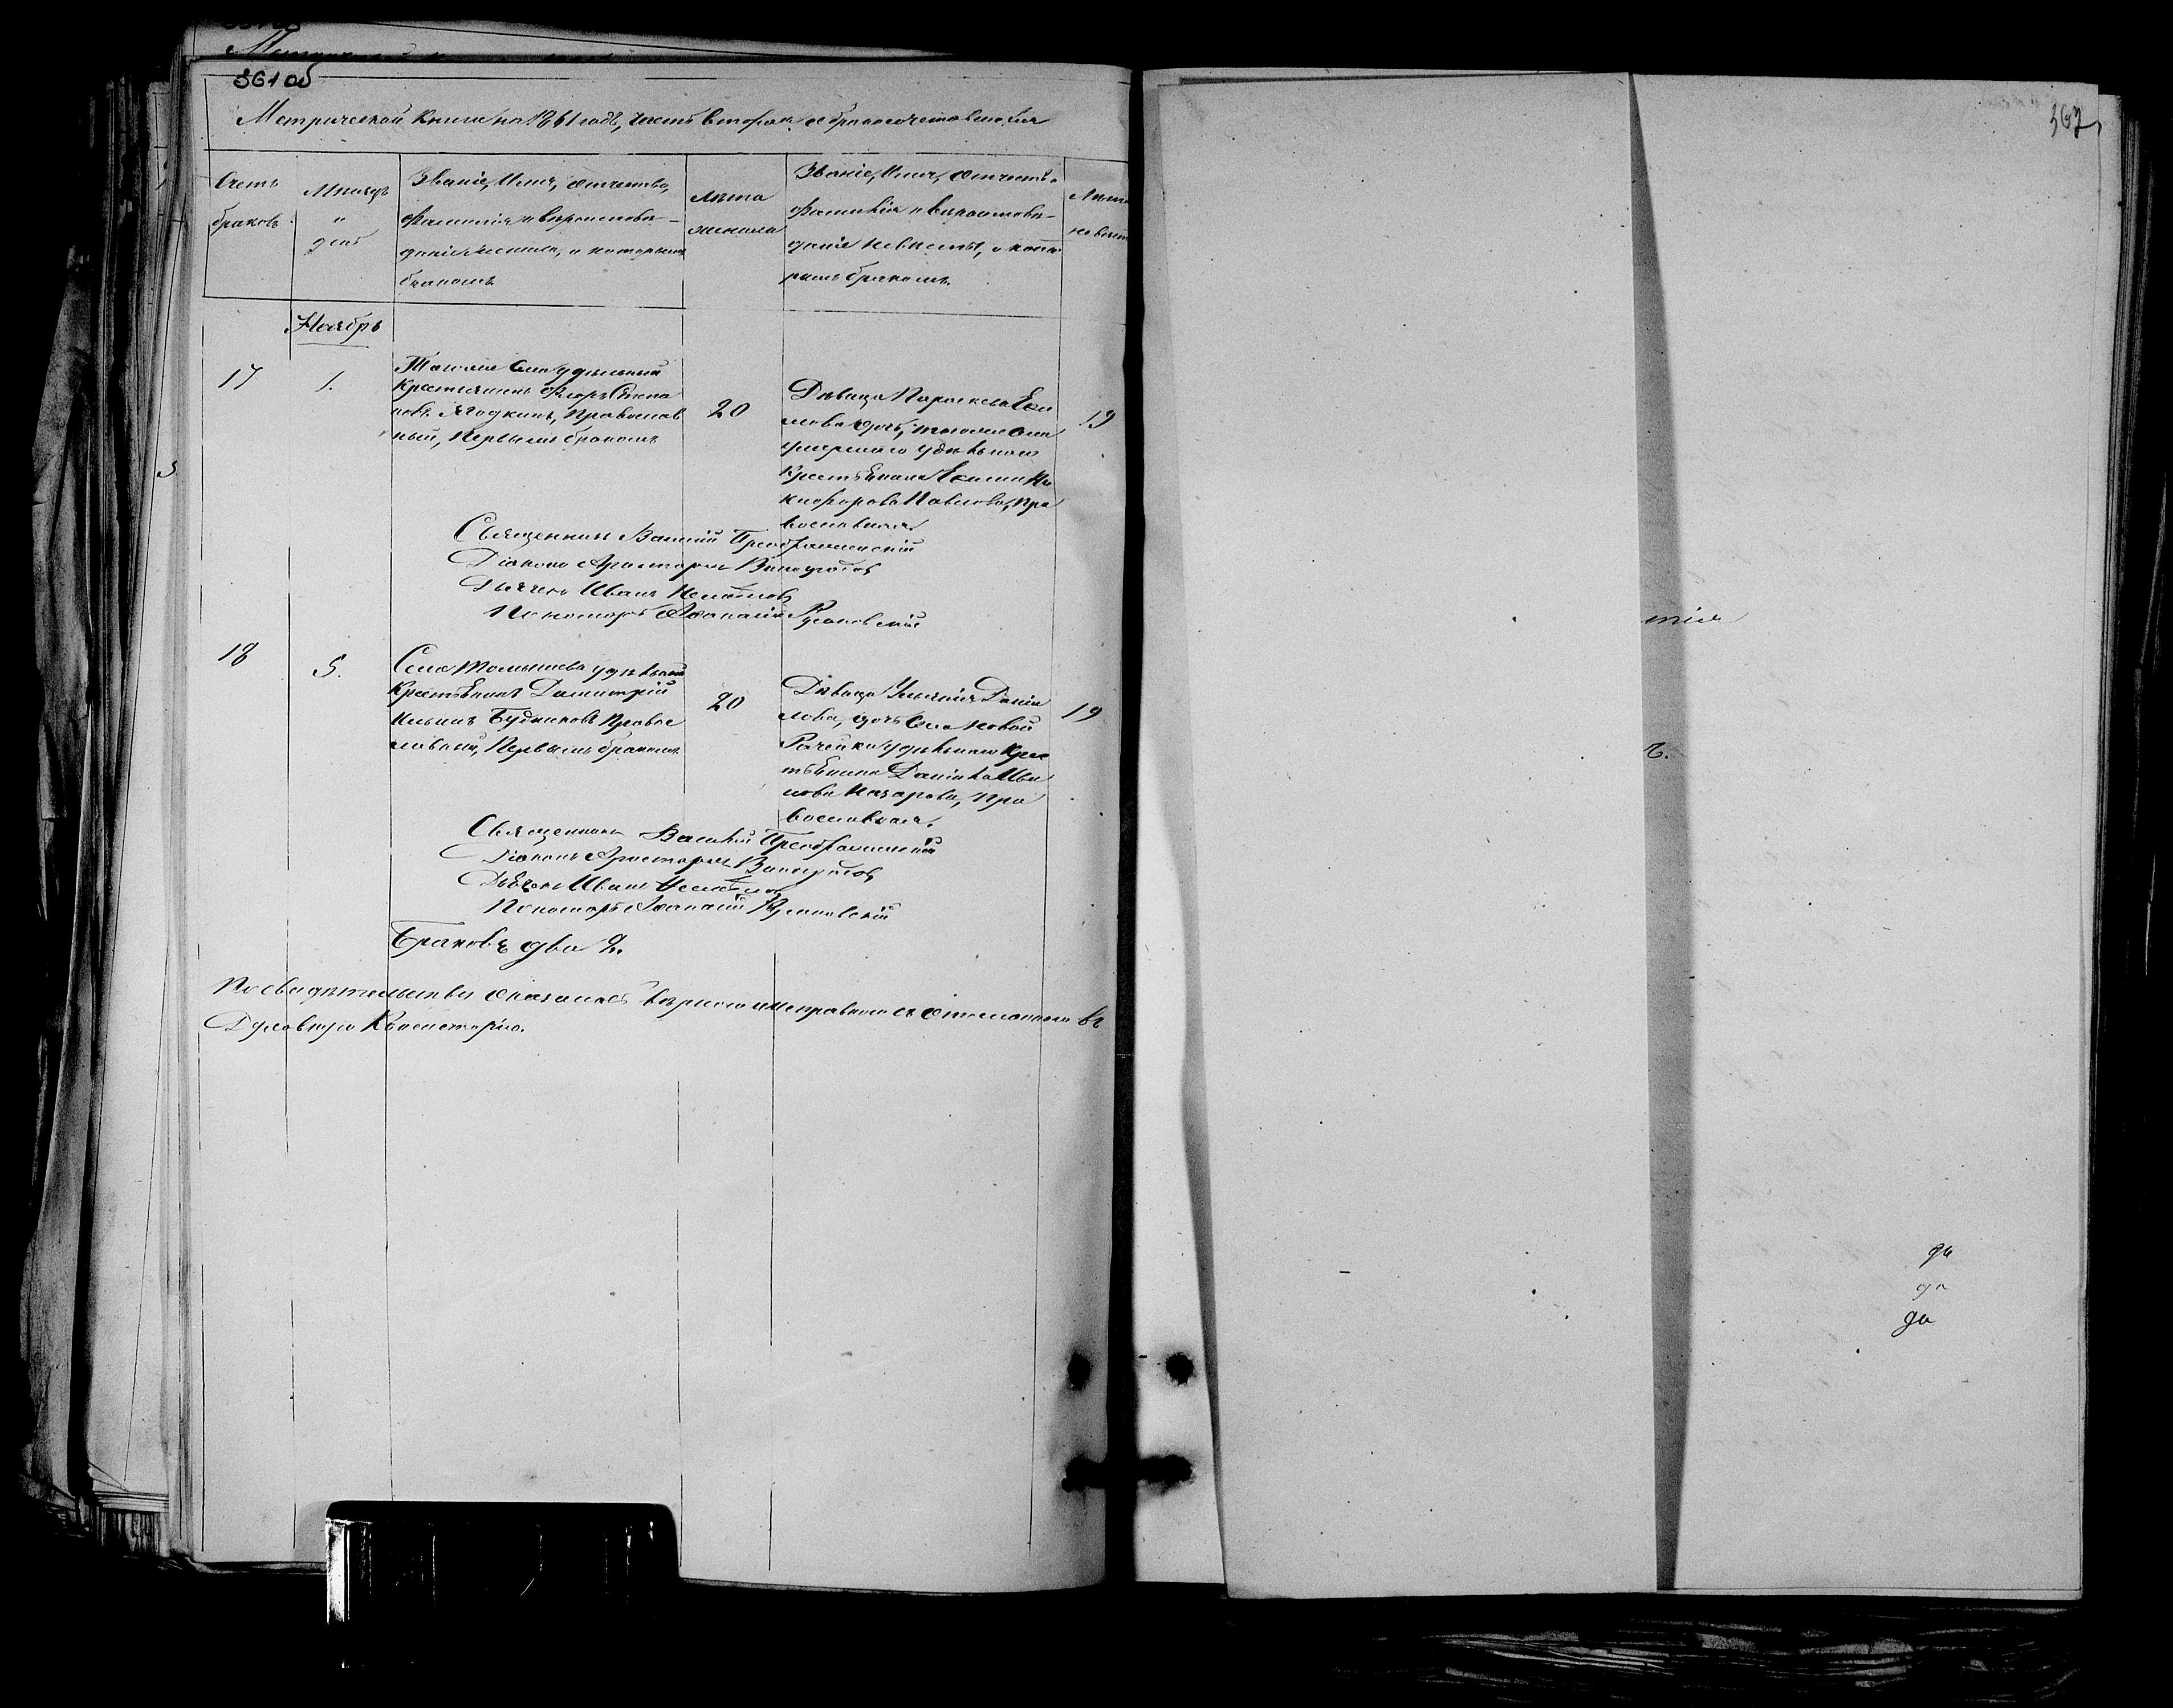 361 об
Метрической книги на 1861 годъ, часть вторая о бракосочетавшихся
Счетъ браковъ
Мѣсяцъ и день
Званіе, Имя, отчество,
фамилія и вѣроисповѣ-
даніе жениха, и которымъ
бракомъ
Лѣта
жениха
Званіе, Имя, отчество
фамилія и вѣроисповѣ-
даніе невѣсты, и кото-
рымъ бракомъ.
Лѣта
невѣсты
Ноябрь
17
1.
Тогоже села удѣльный
крестьянинъ Флоръ Степа
новъ Ягодкинъ, Православ
ный, Первымъ бракомъ
20
Дѣвица Параскева Яки
мова дочь, тогоже села
умершаго удѣльнаго
Крестьянина Якима Ни
кифорова Павлова, Пра
вославная.
19
Священникъ Василій Преображенскій
Діаконъ Аристархъ Виноградовъ
Дьячекъ Иванъ
Пономарь Афанасій
18
5.
Села Томышева удѣльный
Крестьянинъ Димитрій
Ильинъ Будниковъ Правос
лавный, Первымъ бракомъ
20
Дѣвица Даніи
лова, дочь Села Новой
Рачейки удѣльнаго Крес
тьянина Даніила Ива
нова Назарова, Пра
вославная.
19
Священникъ Василій Преображенскій
Діаконъ Аристархъ Виноградовъ
Дьячекъ Иванъ
Пономарь Афанасій
Браковъ два 2.
По свидѣтельствѣ оказалась вѣрною и исправною въ
Духовную Консисторію.
367
тія
ъ.
да
да
да